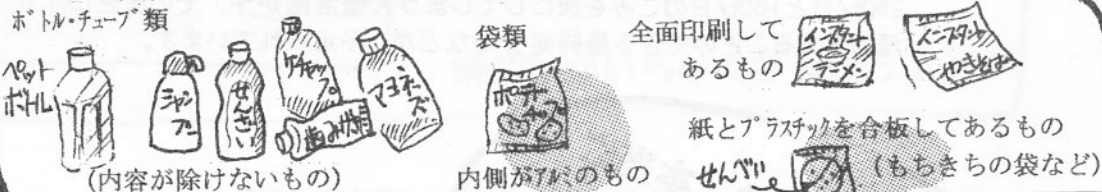 ボトル・チューブ類
ペットボトル
シャンプー
せんざい
ケチャップ
歯みがき
マヨネーズ
(内容が除けないもの)
袋類
ポテトチップス
内側がアルミのもの
全面印刷して
あるもの
インスタントラーメン
インスタントやきそば
紙とプラスチックを合板してあるもの
せんべい
(もちきちの袋など)